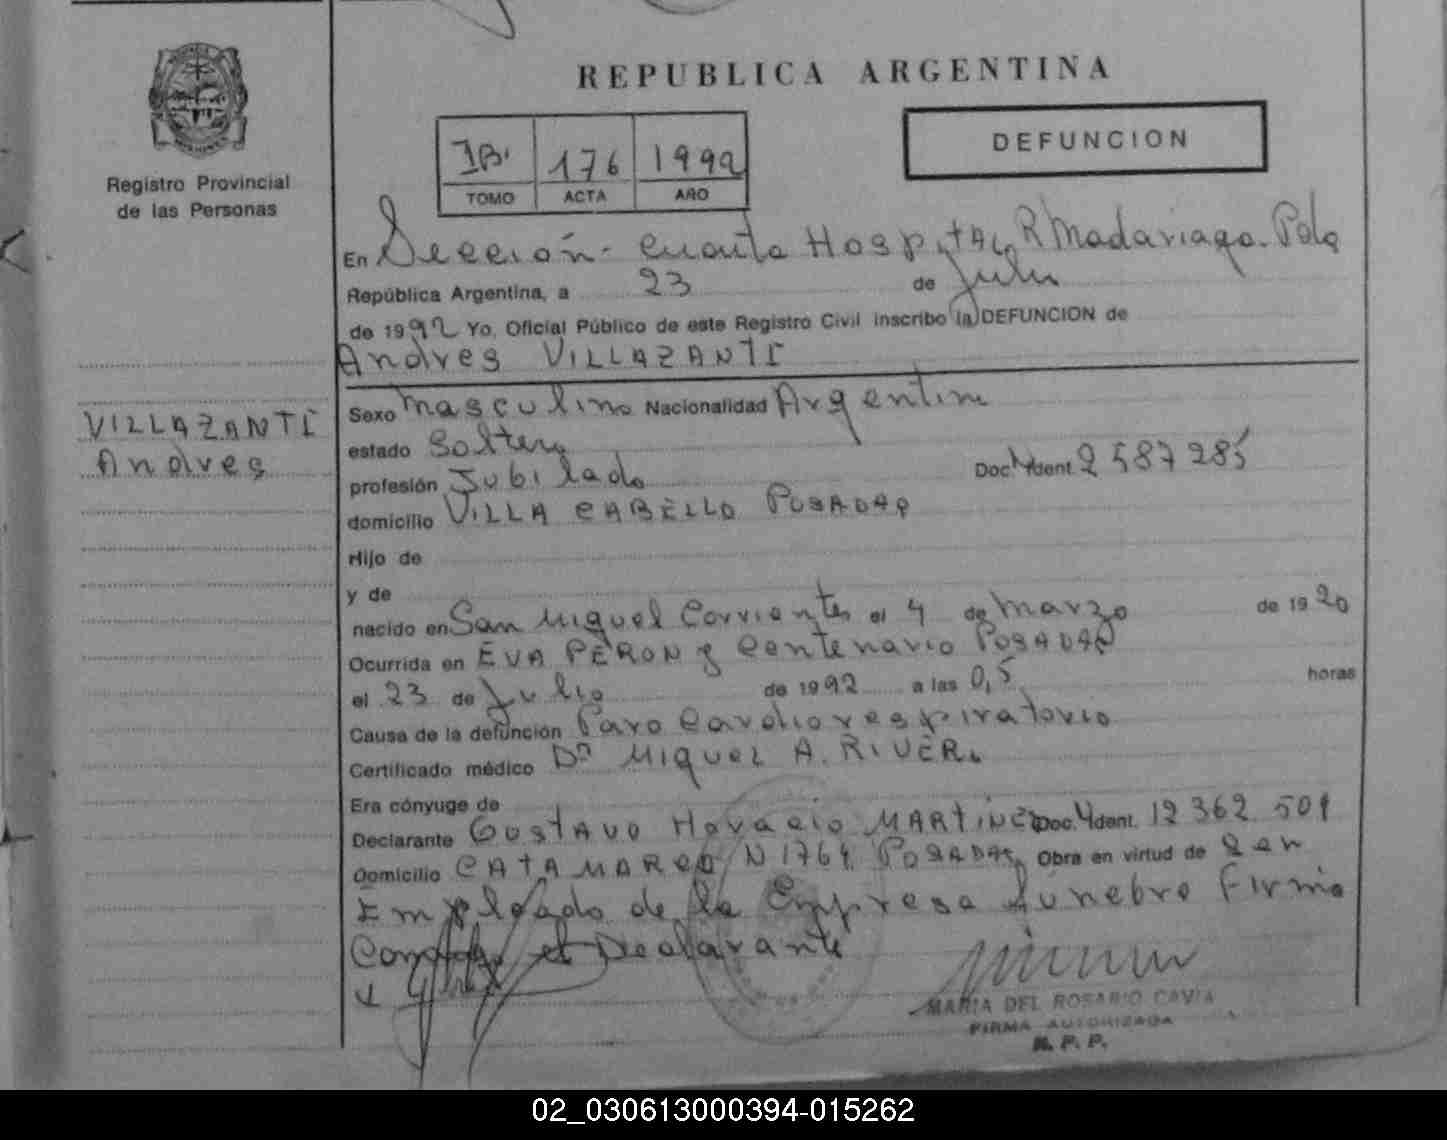 REPUBLICA ARGENTINA
Registro Provincial
de las Personas
IB. 176 1992
TOMO ACTA AÑO
DEFUNCION
En Sección - Cuarta Hospital R Madariaga - Pdas
República Argentina, a 23 de Julio
de 1992 Yo, Oficial Público de este Registro Civil inscribo la DEFUNCION de
Andres VILLAZANTI
VILLAZANTI
Andres
Sexo Masculino Nacionalidad Argentin
estado Soltero
profesión Jubilado Doc. Ident. 2 587 285
domicilio VILLA CABELLO POSADAS
Hijo de
y de
nacido en San Miguel Corrientes el 4 de Marzo de 1920
Ocurrida en EVA PERON y Centenario POSADAS
el 23 de Julio de 1992 a las 0,5 horas
Causa de la defunción Paro Cardiorespiratorio
Certificado médico Dr MIGUEL A. RIVER.
Era cónyuge de
Declarante GUSTAVO Horacio MARTINEZ Doc. Ident. 12 362 501
Domicilio CATAMARCA N 1764 POSADAS Obra en virtud de Ser
Empleado de la Empresa funebre Firma
el Declarante
MARIA DEL ROSARIO CAVIA
FIRMA AUTORIZADA
R. P. P.
02_030613000394-015262